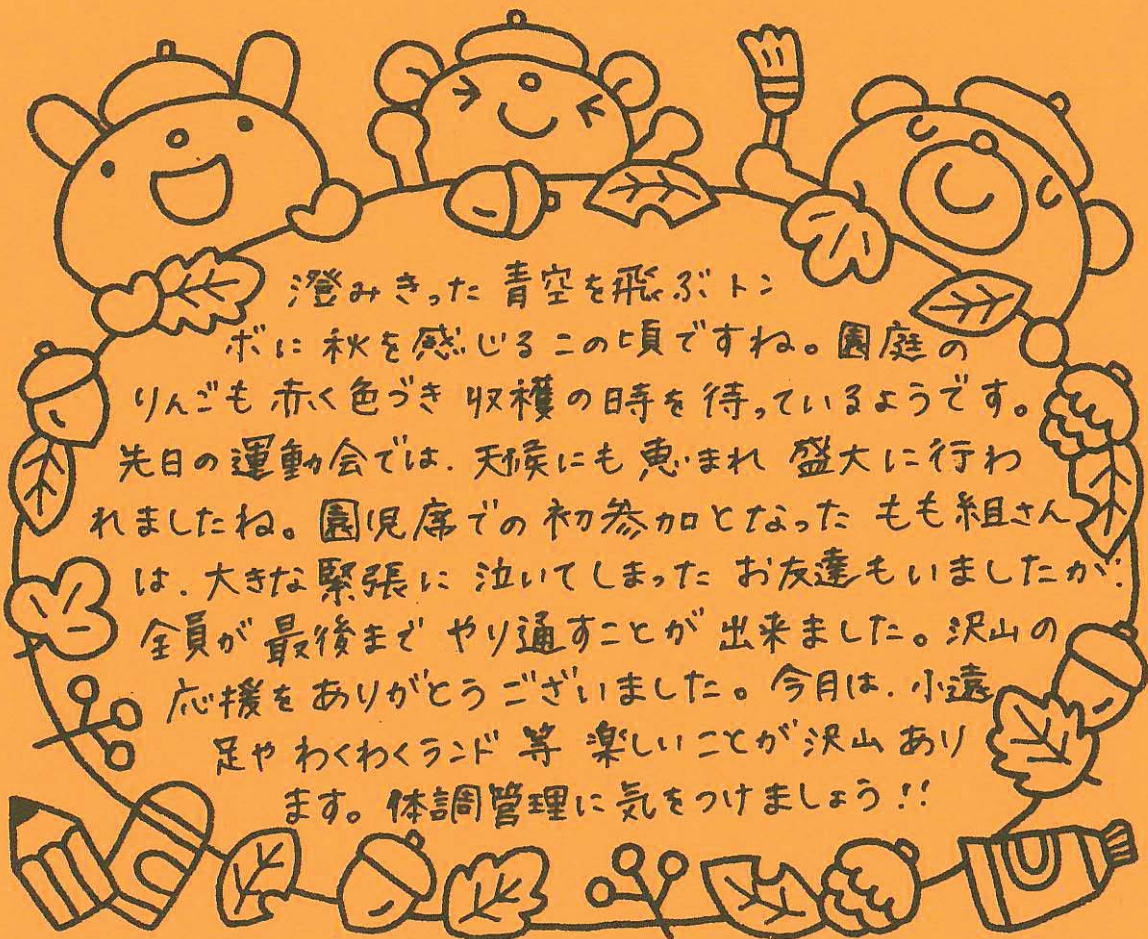 澄みきった 青空を飛ぶトン
ボに 秋を感じるこの頃ですね。園庭の
りんごも 赤く色づき 収穫の時を待っているようです。
先日の運動会では、天候にも恵まれ 盛大に行わ
れましたね。園児席での初参加となった もも組さん
は、大きな緊張に 泣いてしまった お友達もいましたが、
全員が最後まで やり通すことが 出来ました。沢山の
応援をありがとうございました。今月は、小遠
足や わくわくランド 等 楽しいことが沢山あり
ます。体調管理に気をつけましょう!!